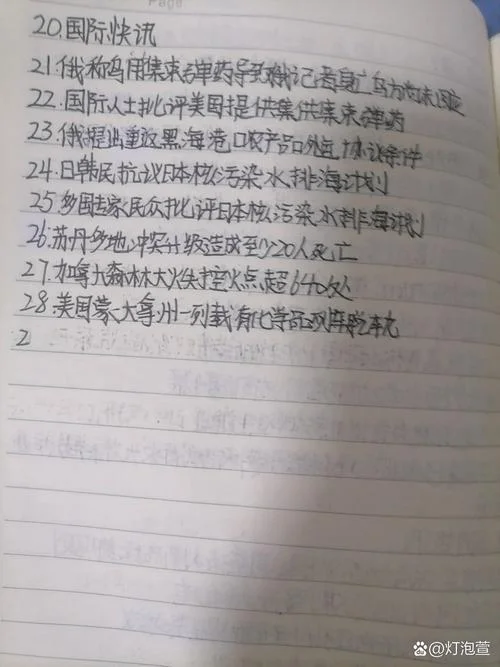 Page
20.国际快讯
21.俄称乌用集束弹药导致俄记者身亡乌方尚未回应
22.国际人士批评美国提供集供集束弹药
23.俄提出重返黑海港口农产品外运协议条件
24.日韩民抗议日本核污染水排海计划
25.多国专家民众批评日本核污染水排海计划
26.苏丹多地冲突升级造成至少20人死亡
27.加拿大森林大火失控火点超640处
28.美国蒙大拿州一列载有化学品列车脱轨
2
灯泡萱